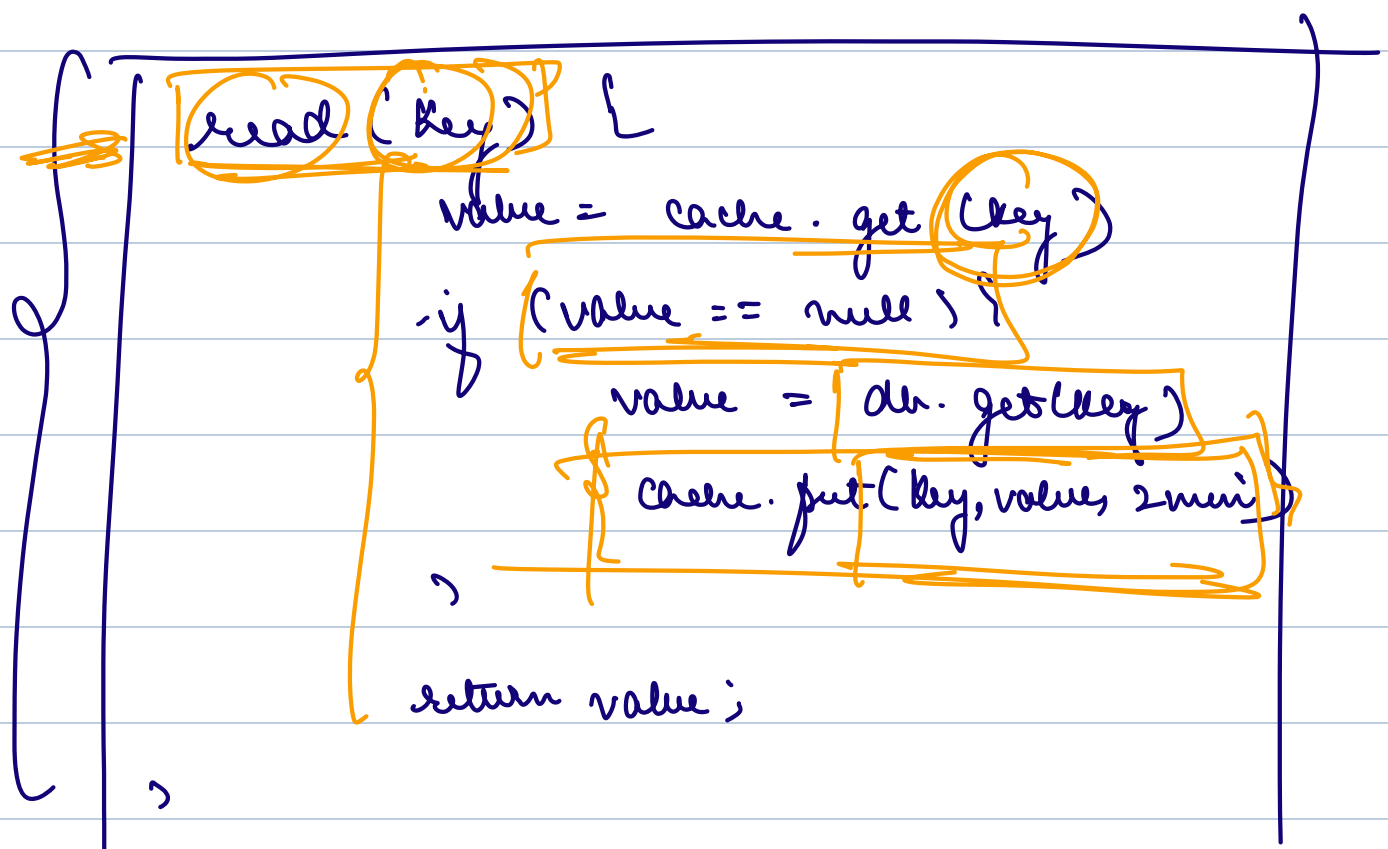 read (key) {
value = cache . get (key)
if (value == null) {
value = db. get(key)
cache. put(key, value, 2min)
}
return value;
}